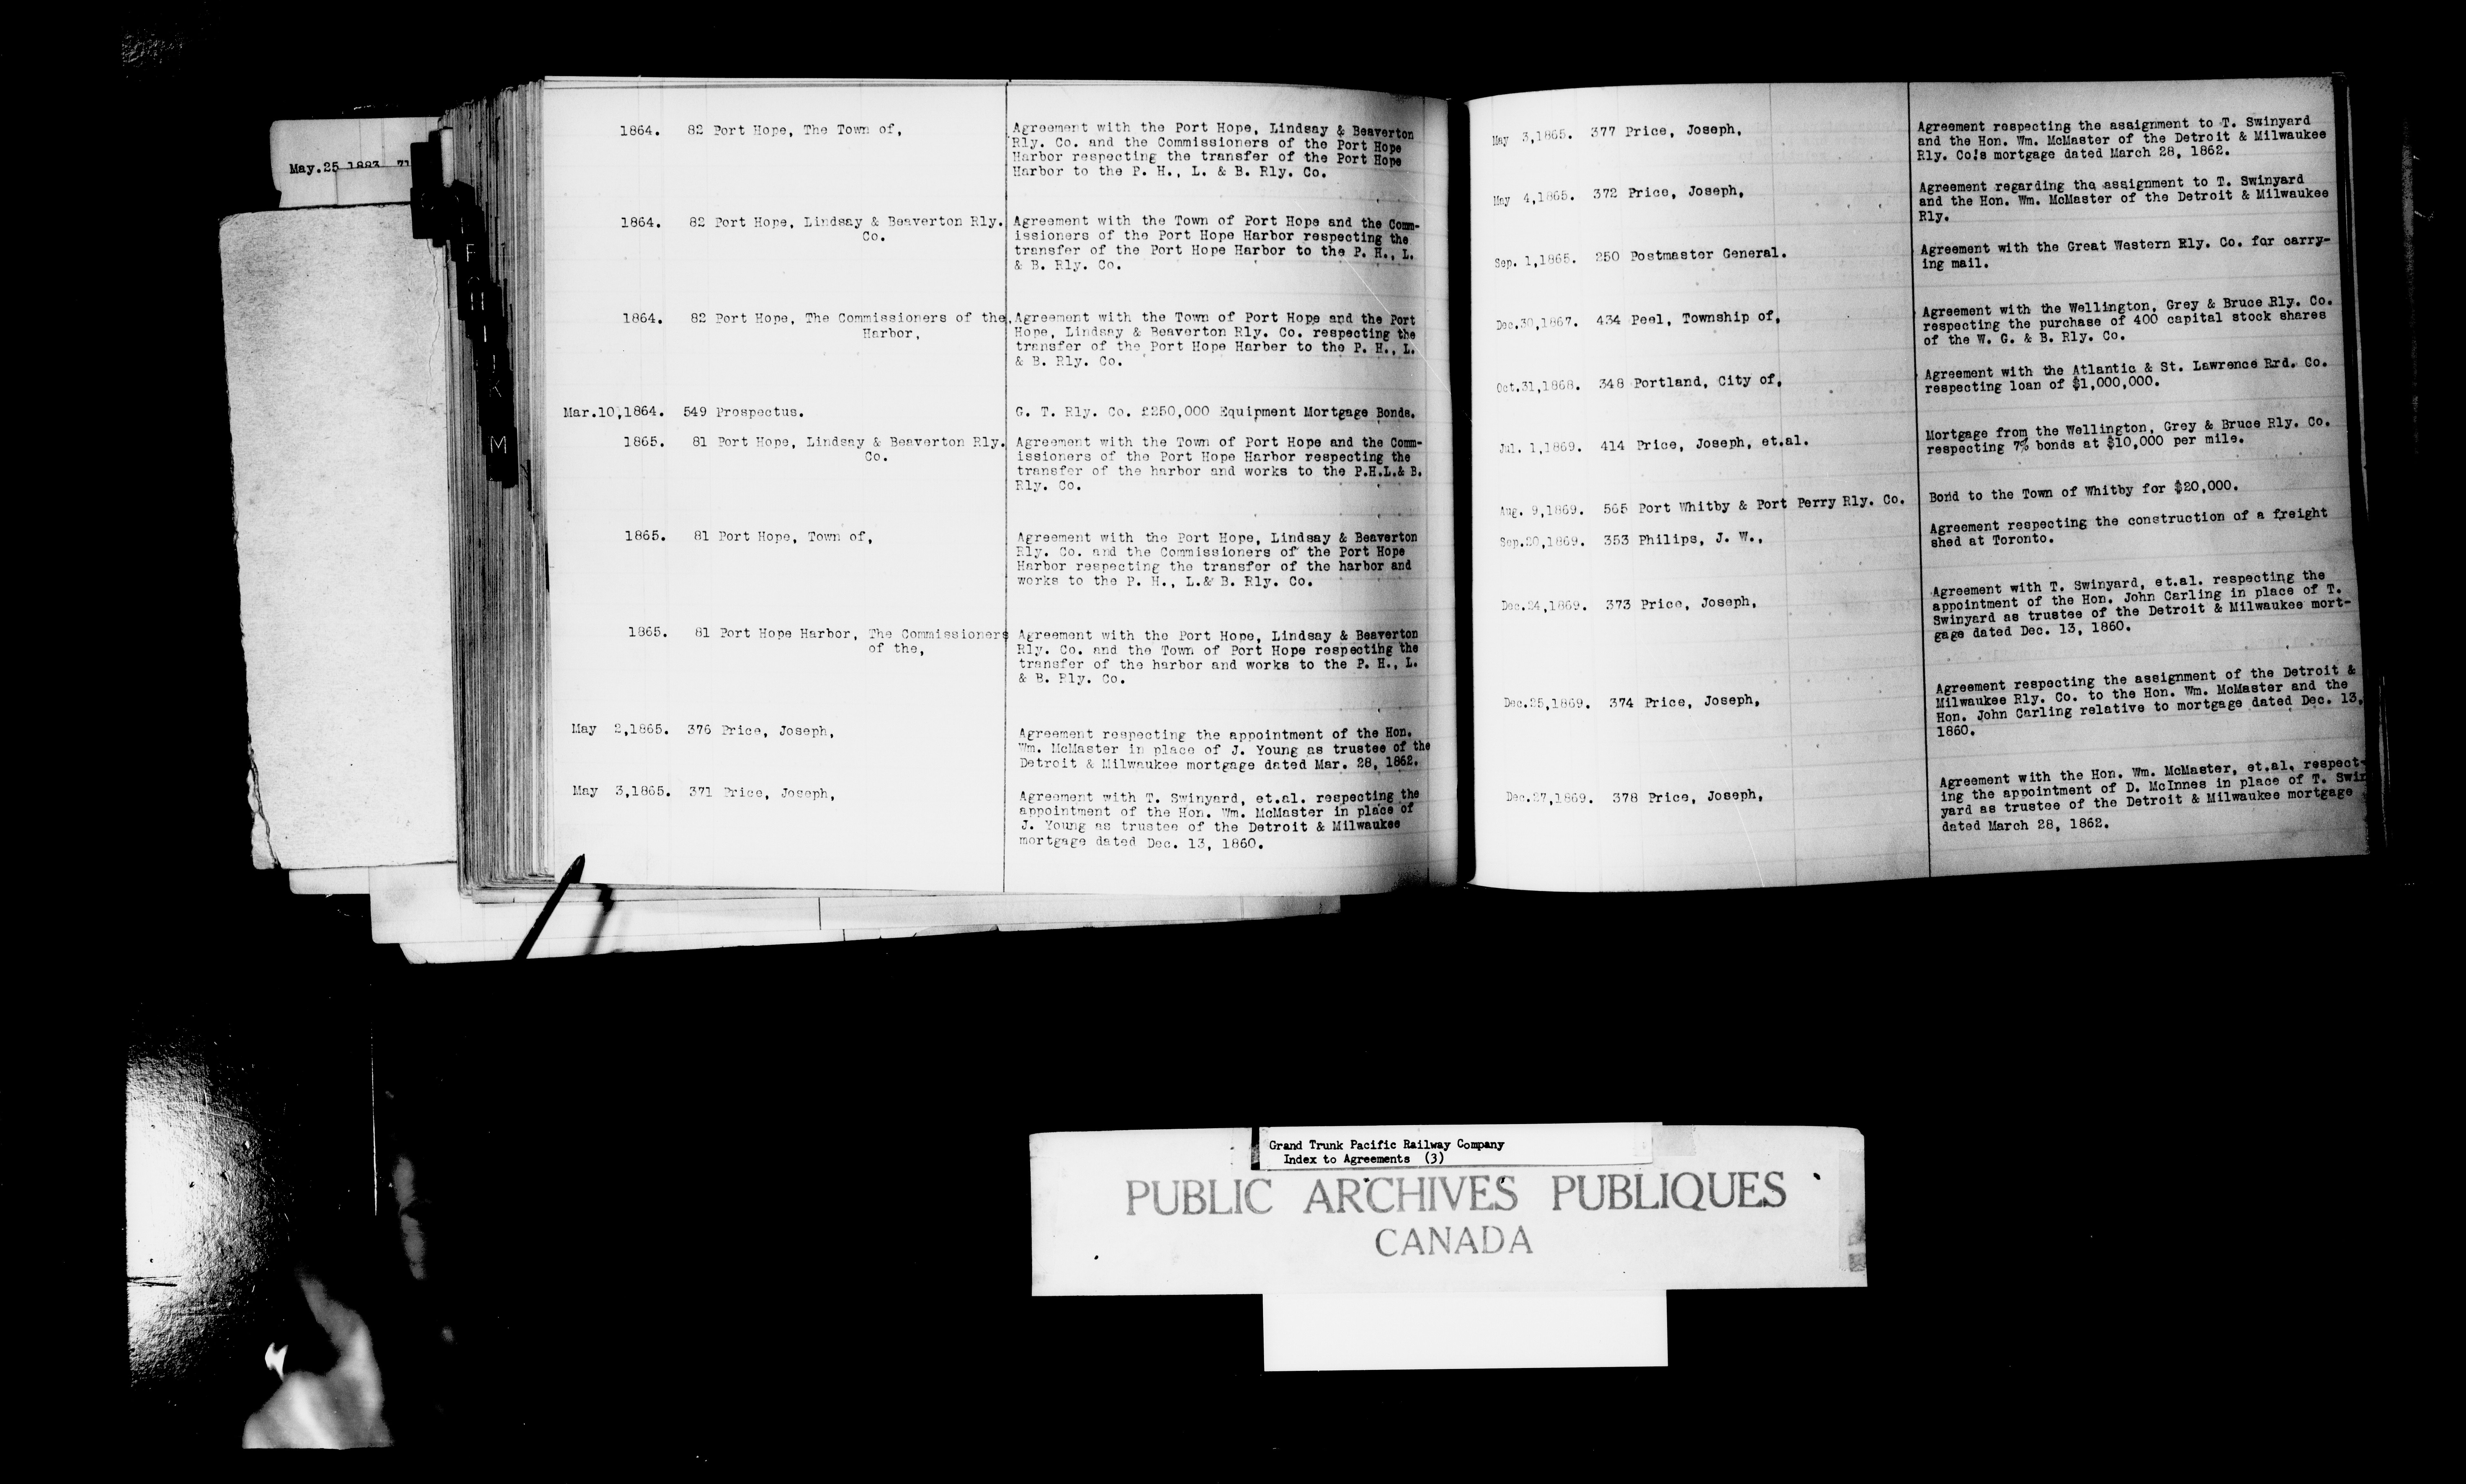 May.25 1883 71
1864. 82 Port Hope, The Town of, Agreement with the Port Hope, Lindsay & Beaverton
Rly. Co. and the Commissioners of the Port Hope
Harbor respecting the transfer of the Port Hope
Harbor to the P. H., L. & B. Rly. Co.
1864. 82 Port Hope, Lindsay & Beaverton Rly. Agreement with the Town of Port Hope and the Comm-
Co. issioners of the Port Hope Harbor respecting the
transfer of the Port Hope Harbor to the P. H., L.
& B. Rly. Co.
1864. 82 Port Hope, The Commissioners of the, Agreement with the Town of Port Hope and the Port
Harbor, Hope, Lindsay & Beaverton Rly. Co. respecting the
transfer of the Port Hope Harber to the P. H., L.
& B. Rly. Co.
Mar.10,1864. 549 Prospectus. G. T. Rly. Co. £250,000 Equipment Mortgage Bonds.
1865. 81 Port Hope, Lindsay & Beaverton Rly. Agreement with the Town of Port Hope and the Comm-
Co. issioners of the Port Hope Harbor respecting the
transfer of the harbor and works to the P.H.L.& B.
Rly. Co.
1865. 81 Port Hope, Town of, Agreement with the Port Hope, Lindsay & Beaverton
Rly. Co. and the Commissioners of the Port Hope
Harbor respecting the transfer of the harbor and
works to the P. H., L.& B. Rly. Co.
1865. 81 Port Hope Harbor, The Commissioners Agreement with the Port Hope, Lindsay & Beaverton
of the, Rly. Co. and the Town of Port Hope respecting the
transfer of the harbor and works to the P. H., L.
& B. Rly. Co.
May 2,1865. 376 Price, Joseph, Agreement respecting the appointment of the Hon.
Wm. McMaster in place of J. Young as trustee of the
Detroit & Milwaukee mortgage dated Mar. 28, 1862.
May 3,1865. 371 Price, Joseph, Agreement with T. Swinyard, et.al. respecting the
appointment of the Hon. Wm. McMaster in place of
J. Young as trustee of the Detroit & Milwaukee
mortgage dated Dec. 13, 1860.
May 3,1865. 377 Price, Joseph, Agreement respecting the assignment to T. Swinyard
and the Hon. Wm. McMaster of the Detroit & Milwaukee
Rly. Co's mortgage dated March 28, 1862.
May 4,1865. 372 Price, Joseph, Agreement regarding the assignment to T. Swinyard
and the Hon. Wm. McMaster of the Detroit & Milwaukee
Rly.
Sep. 1,1865. 250 Postmaster General. Agreement with the Great Western Rly. Co. for carry-
ing mail.
Dec.30,1867. 434 Peel, Township of, Agreement with the Wellington, Grey & Bruce Rly. Co.
respecting the purchase of 400 capital stock shares
of the W. G. & B. Rly. Co.
Oct.31,1868. 348 Portland, City of, Agreement with the Atlantic & St. Lawrence Rrd. Co.
respecting loan of $1,000,000.
Jul. 1,1869. 414 Price, Joseph, et.al. Mortgage from the Wellington, Grey & Bruce Rly. Co.
respecting 7% bonds at $10,000 per mile.
Aug. 9,1869. 565 Port Whitby & Port Perry Rly. Co. Bond to the Town of Whitby for $20,000.
Sep.20,1869. 353 Philips, J. W., Agreement respecting the construction of a freight
shed at Toronto.
Dec.24,1869. 373 Price, Joseph, Agreement with T. Swinyard, et.al. respecting the
appointment of the Hon. John Carling in place of T.
Swinyard as trustee of the Detroit & Milwaukee mort-
gage dated Dec. 13, 1860.
Dec.25,1869. 374 Price, Joseph, Agreement respecting the assignment of the Detroit &
Milwaukee Rly. Co. to the Hon. Wm. McMaster and the
Hon. John Carling relative to mortgage dated Dec. 13,
1860.
Dec.27,1869. 378 Price, Joseph, Agreement with the Hon. Wm. McMaster, et.al. respect-
ing the appointment of D. McInnes in place of T. Swin
yard as trustee of the Detroit & Milwaukee mortgage
dated March 28, 1862.
Grand Trunk Pacific Railway Company
Index to Agreements (3)
PUBLIC ARCHIVES PUBLIQUES
CANADA